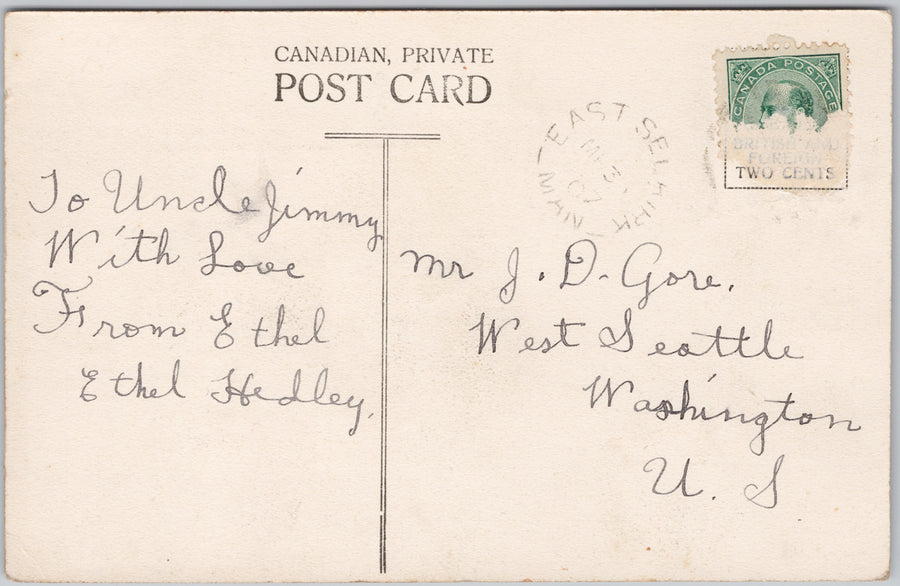 CANADIAN, PRIVATE
POST CARD
CANADA POSTAGE
BRITISH AND
FOREIGN
TWO CENTS
EAST SELKIRK
MAN
To Uncle Jimmy
With Love
From Ethel
Ethel Hedley.
Mr J. D. Gore.
West Seattle
Washington
U. S